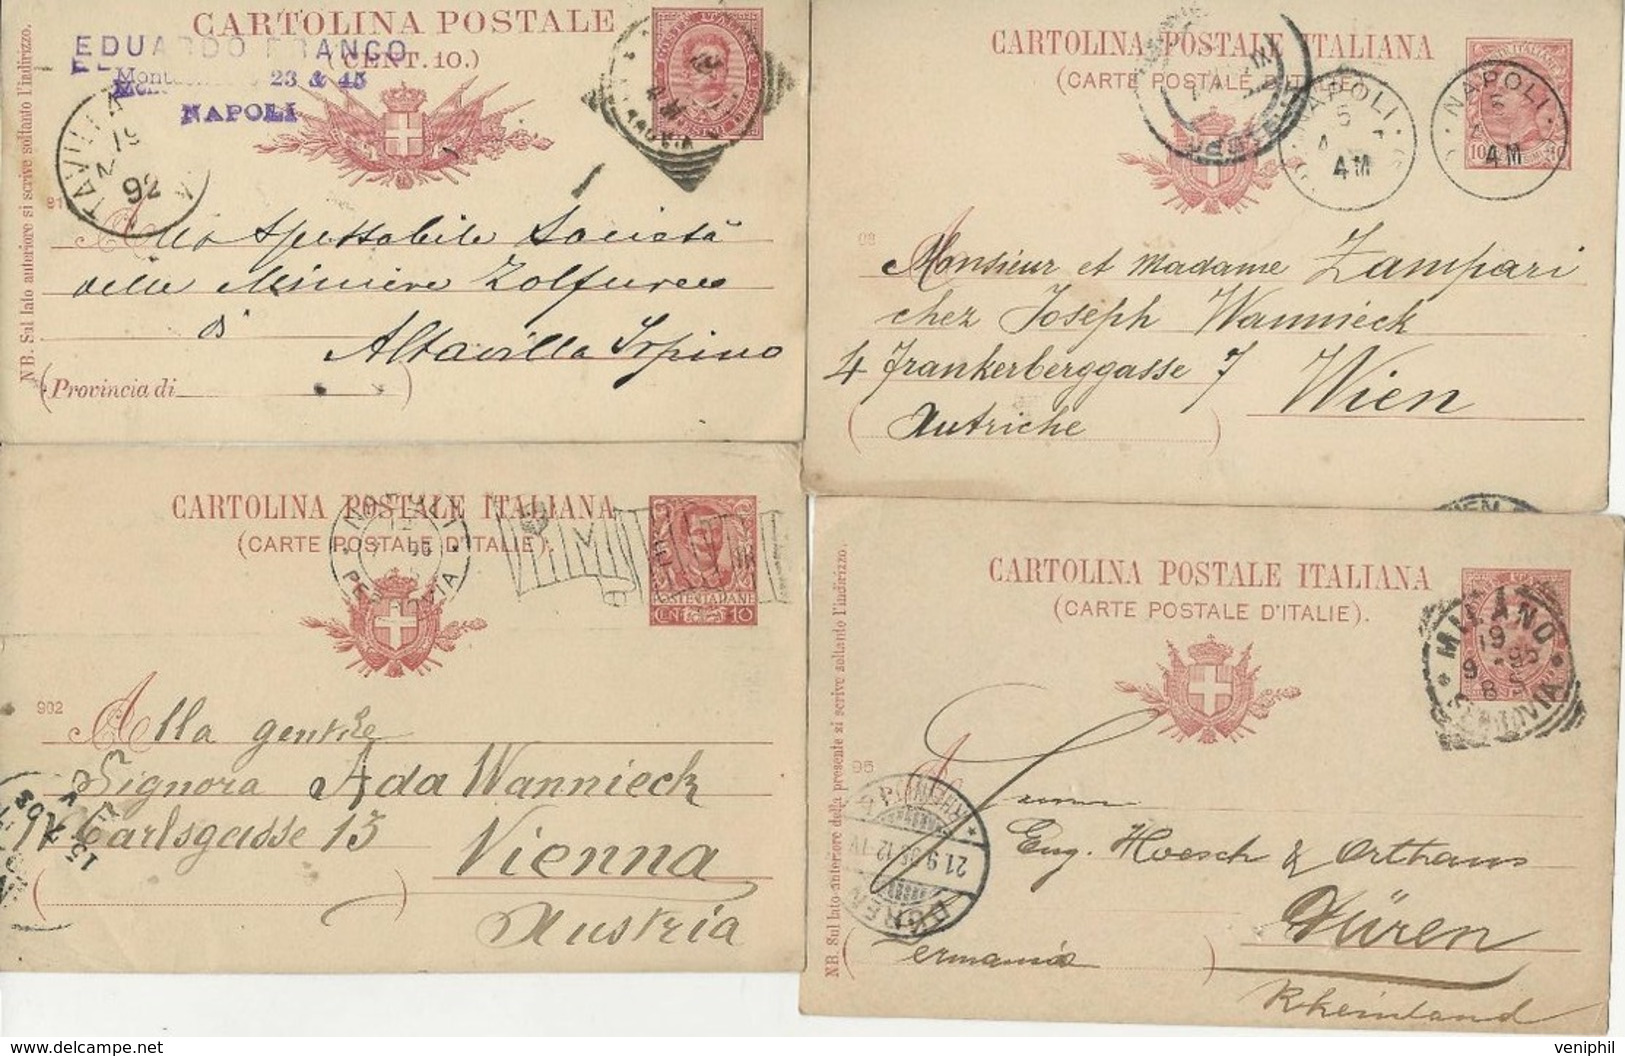 CARTOLINA POSTALE
(CENT. 10.)
EDUARDO FRANCO
23 & 45
NAPOLI
92
NB. Sul lato anteriore si scrive soltanto l'indirizzo.
Alla Spettabile Società
delle Miniere Zolfuree
di
Altavilla Irpino
(Provincia di )
CARTOLINA POSTALE ITALIANA
(CARTE POSTALE D'ITALIE)
NAPOLI
5
4 M
NAPOLI
5
4 M
10
08
Monsieur et Madame Zampari
chez Joseph Wannieck
4 Frankerberggasse 7
Wien
Autriche
CARTOLINA POSTALE ITALIANA
(CARTE POSTALE D'ITALIE).
POSTE ITALIANE
CENT 10
902
Alla gentile
Signora Ada Wannieck
IV Carlsgasse 13
Vienna
Austria
CARTOLINA POSTALE ITALIANA
(CARTE POSTALE D'ITALIE).
MILANO
19
9 -95
8 S
FERROVIA
NB. Sul lato anteriore della presente si scrive soltanto l'indirizzo.
95
DÜREN
(RHEINL)
21.9.95.12-1V
Eug. Hoesch & Orthaus
Düren
Germania
Rheinland
veniphil